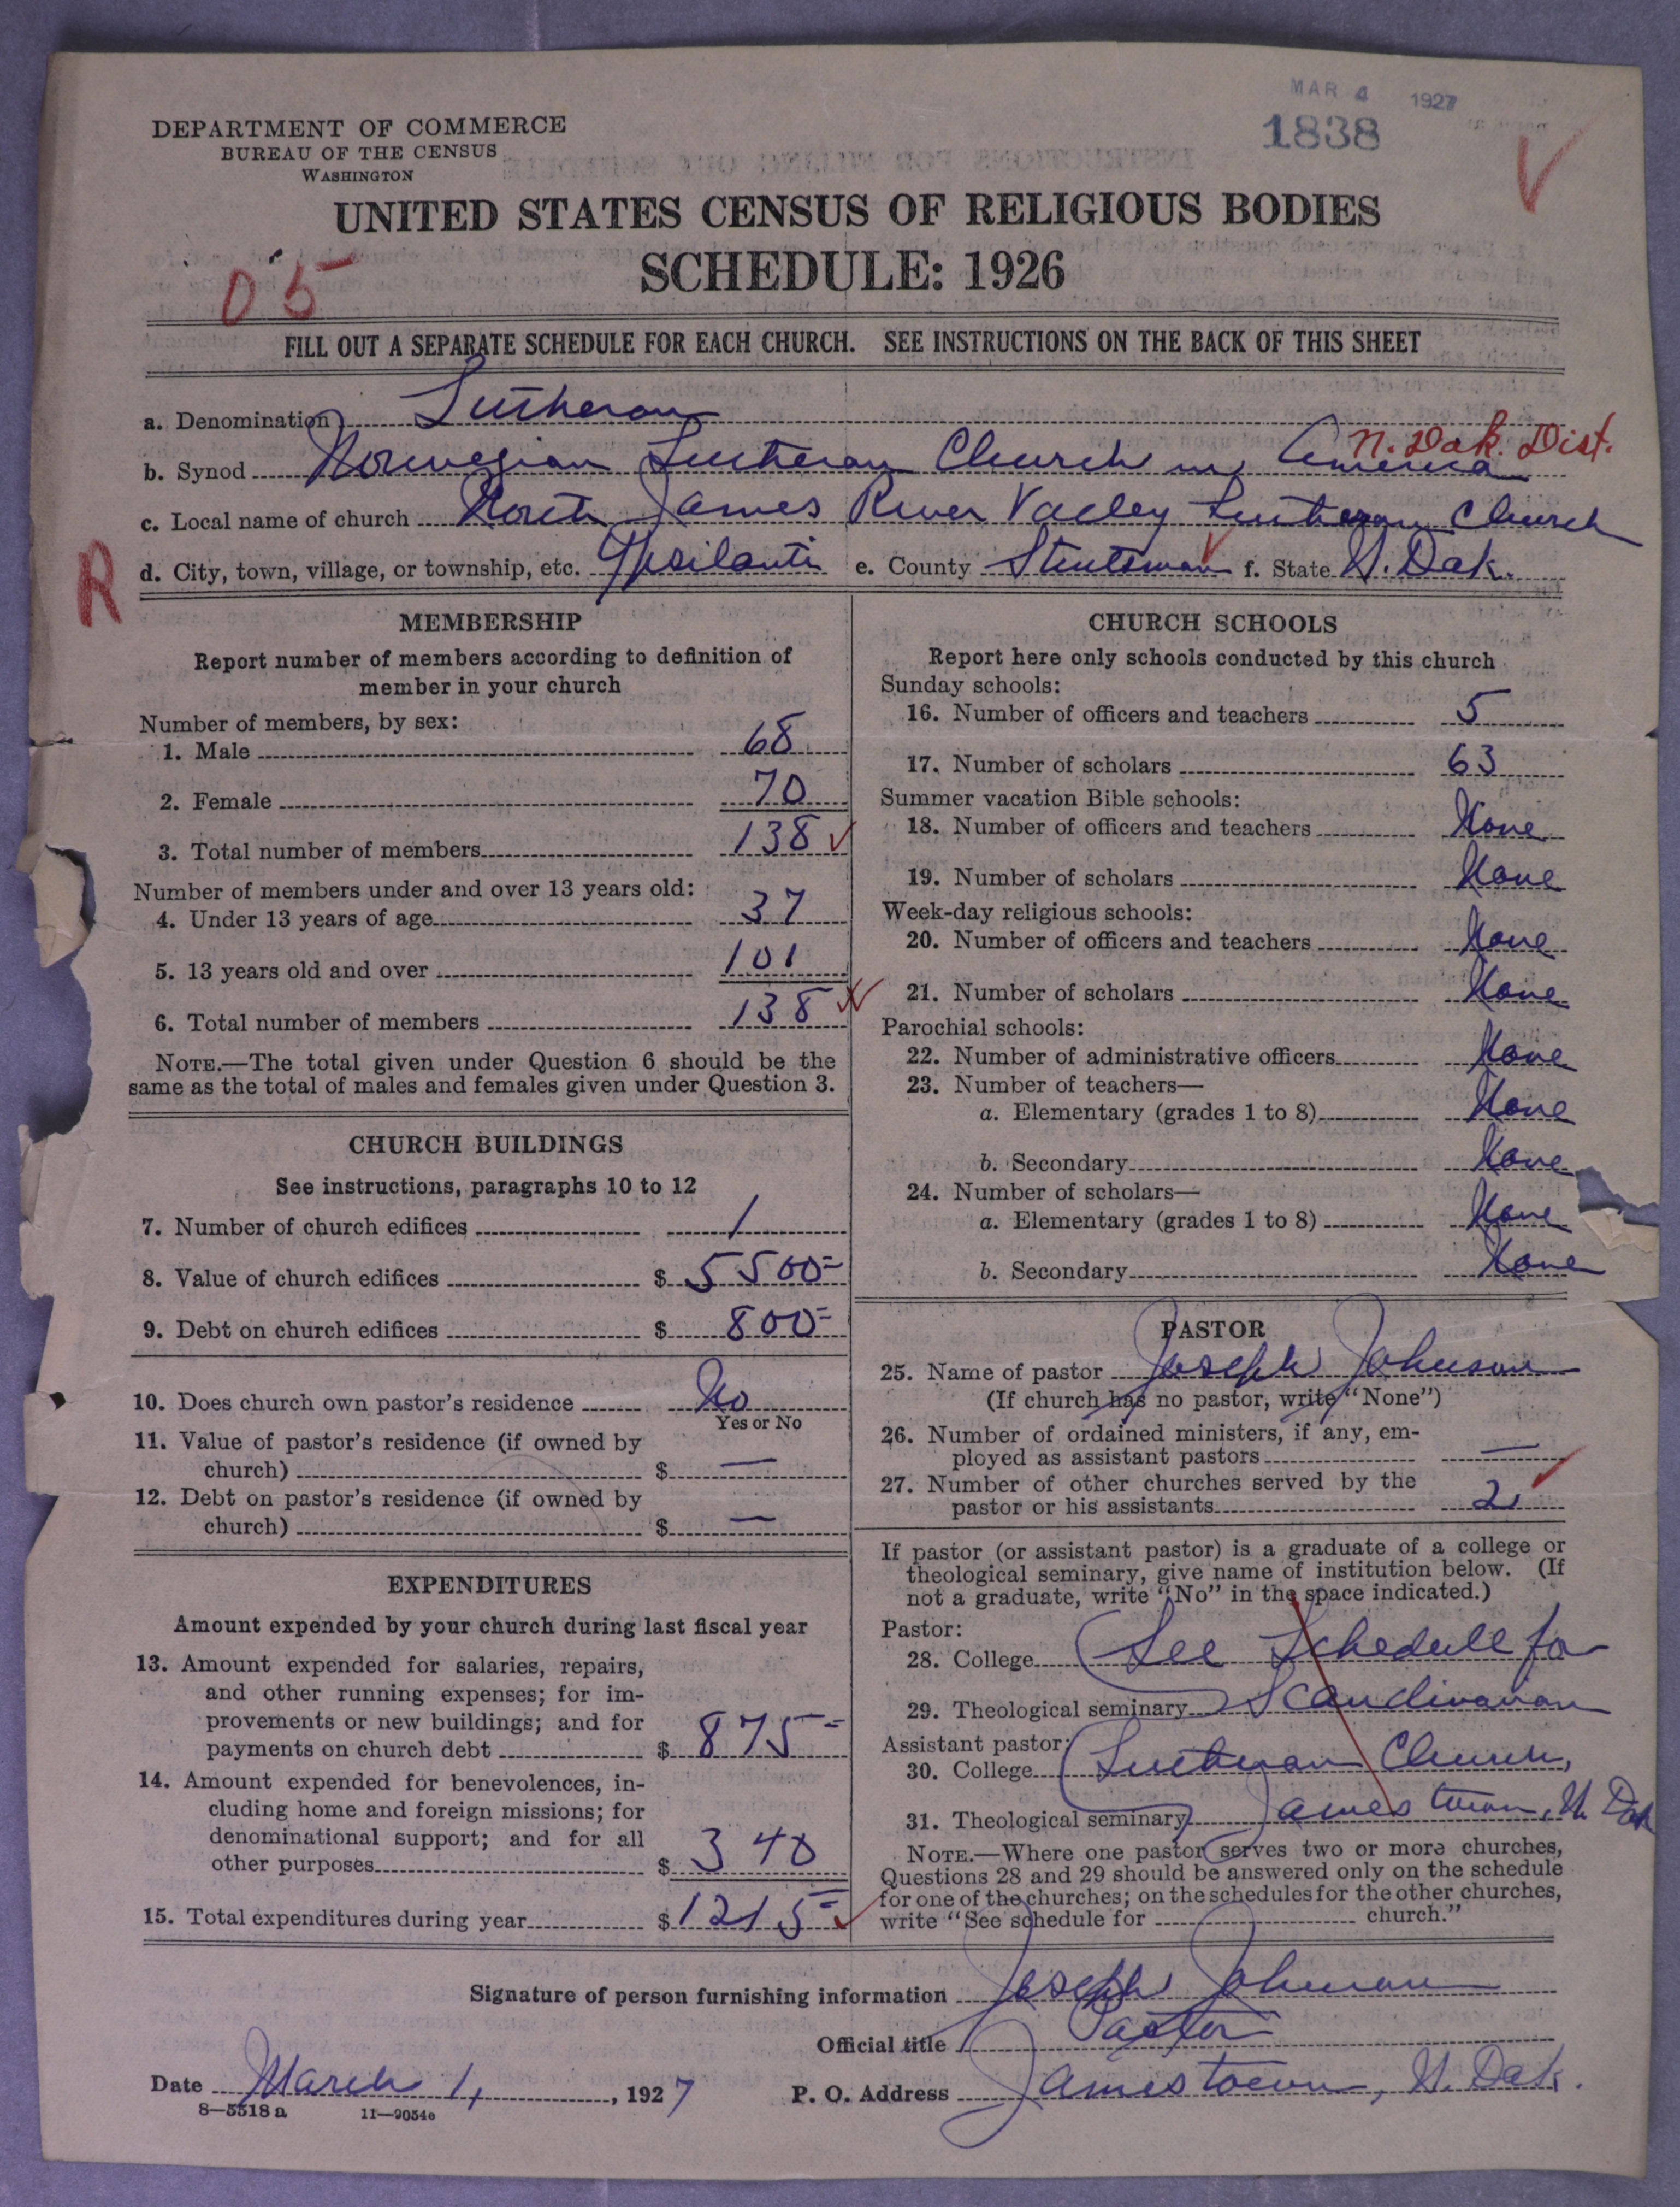 MAR 4 1927
1838
DEPARTMENT OF COMMERCE
BUREAU OF THE CENSUS
WASHINGTON
UNITED STATES CENSUS OF RELIGIOUS BODIES
SCHEDULE: 1926
05
FILL OUT A SEPARATE SCHEDULE FOR EACH CHURCH. SEE INSTRUCTIONS ON THE BACK OF THIS SHEET
a. Denomination Lutheran
N. Dak. Dist.
b. Synod Norwegian Lutheran Church in America
c. Local name of church North James River Valley Lutheran Church
d. City, town, village, or township, etc. Ypsilanti e. County Stutsman f. State N. Dak.
R
MEMBERSHIP
Report number of members according to definition of
member in your church
Number of members, by sex:
1. Male 68
2. Female 70
3. Total number of members 138
Number of members under and over 13 years old:
4. Under 13 years of age 37
5. 13 years old and over 101
6. Total number of members 138
NOTE.—The total given under Question 6 should be the
same as the total of males and females given under Question 3.
CHURCH BUILDINGS
See instructions, paragraphs 10 to 12
7. Number of church edifices 1
8. Value of church edifices $ 5500=
9. Debt on church edifices $ 800=
10. Does church own pastor's residence No
Yes or No
11. Value of pastor's residence (if owned by
church) $ —
12. Debt on pastor's residence (if owned by
church) $ —
EXPENDITURES
Amount expended by your church during last fiscal year
13. Amount expended for salaries, repairs,
and other running expenses; for im-
provements or new buildings; and for
payments on church debt $ 875=
14. Amount expended for benevolences, in-
cluding home and foreign missions; for
denominational support; and for all
other purposes $ 340
15. Total expenditures during year $ 1215=
CHURCH SCHOOLS
Report here only schools conducted by this church
Sunday schools:
16. Number of officers and teachers 5
17. Number of scholars 63
Summer vacation Bible schools:
18. Number of officers and teachers None
19. Number of scholars None
Week-day religious schools:
20. Number of officers and teachers None
21. Number of scholars None
Parochial schools:
22. Number of administrative officers None
23. Number of teachers—
a. Elementary (grades 1 to 8) None
b. Secondary None
24. Number of scholars—
a. Elementary (grades 1 to 8) None
b. Secondary None
PASTOR
25. Name of pastor Joseph Johnson
(If church has no pastor, write "None")
26. Number of ordained ministers, if any, em-
ployed as assistant pastors —
27. Number of other churches served by the
pastor or his assistants 2
If pastor (or assistant pastor) is a graduate of a college or
theological seminary, give name of institution below. (If
not a graduate, write "No" in the space indicated.)
Pastor:
28. College See Schedule for
29. Theological seminary Scandinavian
Assistant pastor:
30. College Lutheran Church,
31. Theological seminary Jamestown, N. Dak
NOTE.—Where one pastor serves two or more churches,
Questions 28 and 29 should be answered only on the schedule
for one of the churches; on the schedules for the other churches,
write "See schedule for church."
Signature of person furnishing information Joseph Johnson
Official title Pastor
Date March 1, 1927 P. O. Address Jamestown, N. Dak.
8—5518 a 11—9054e